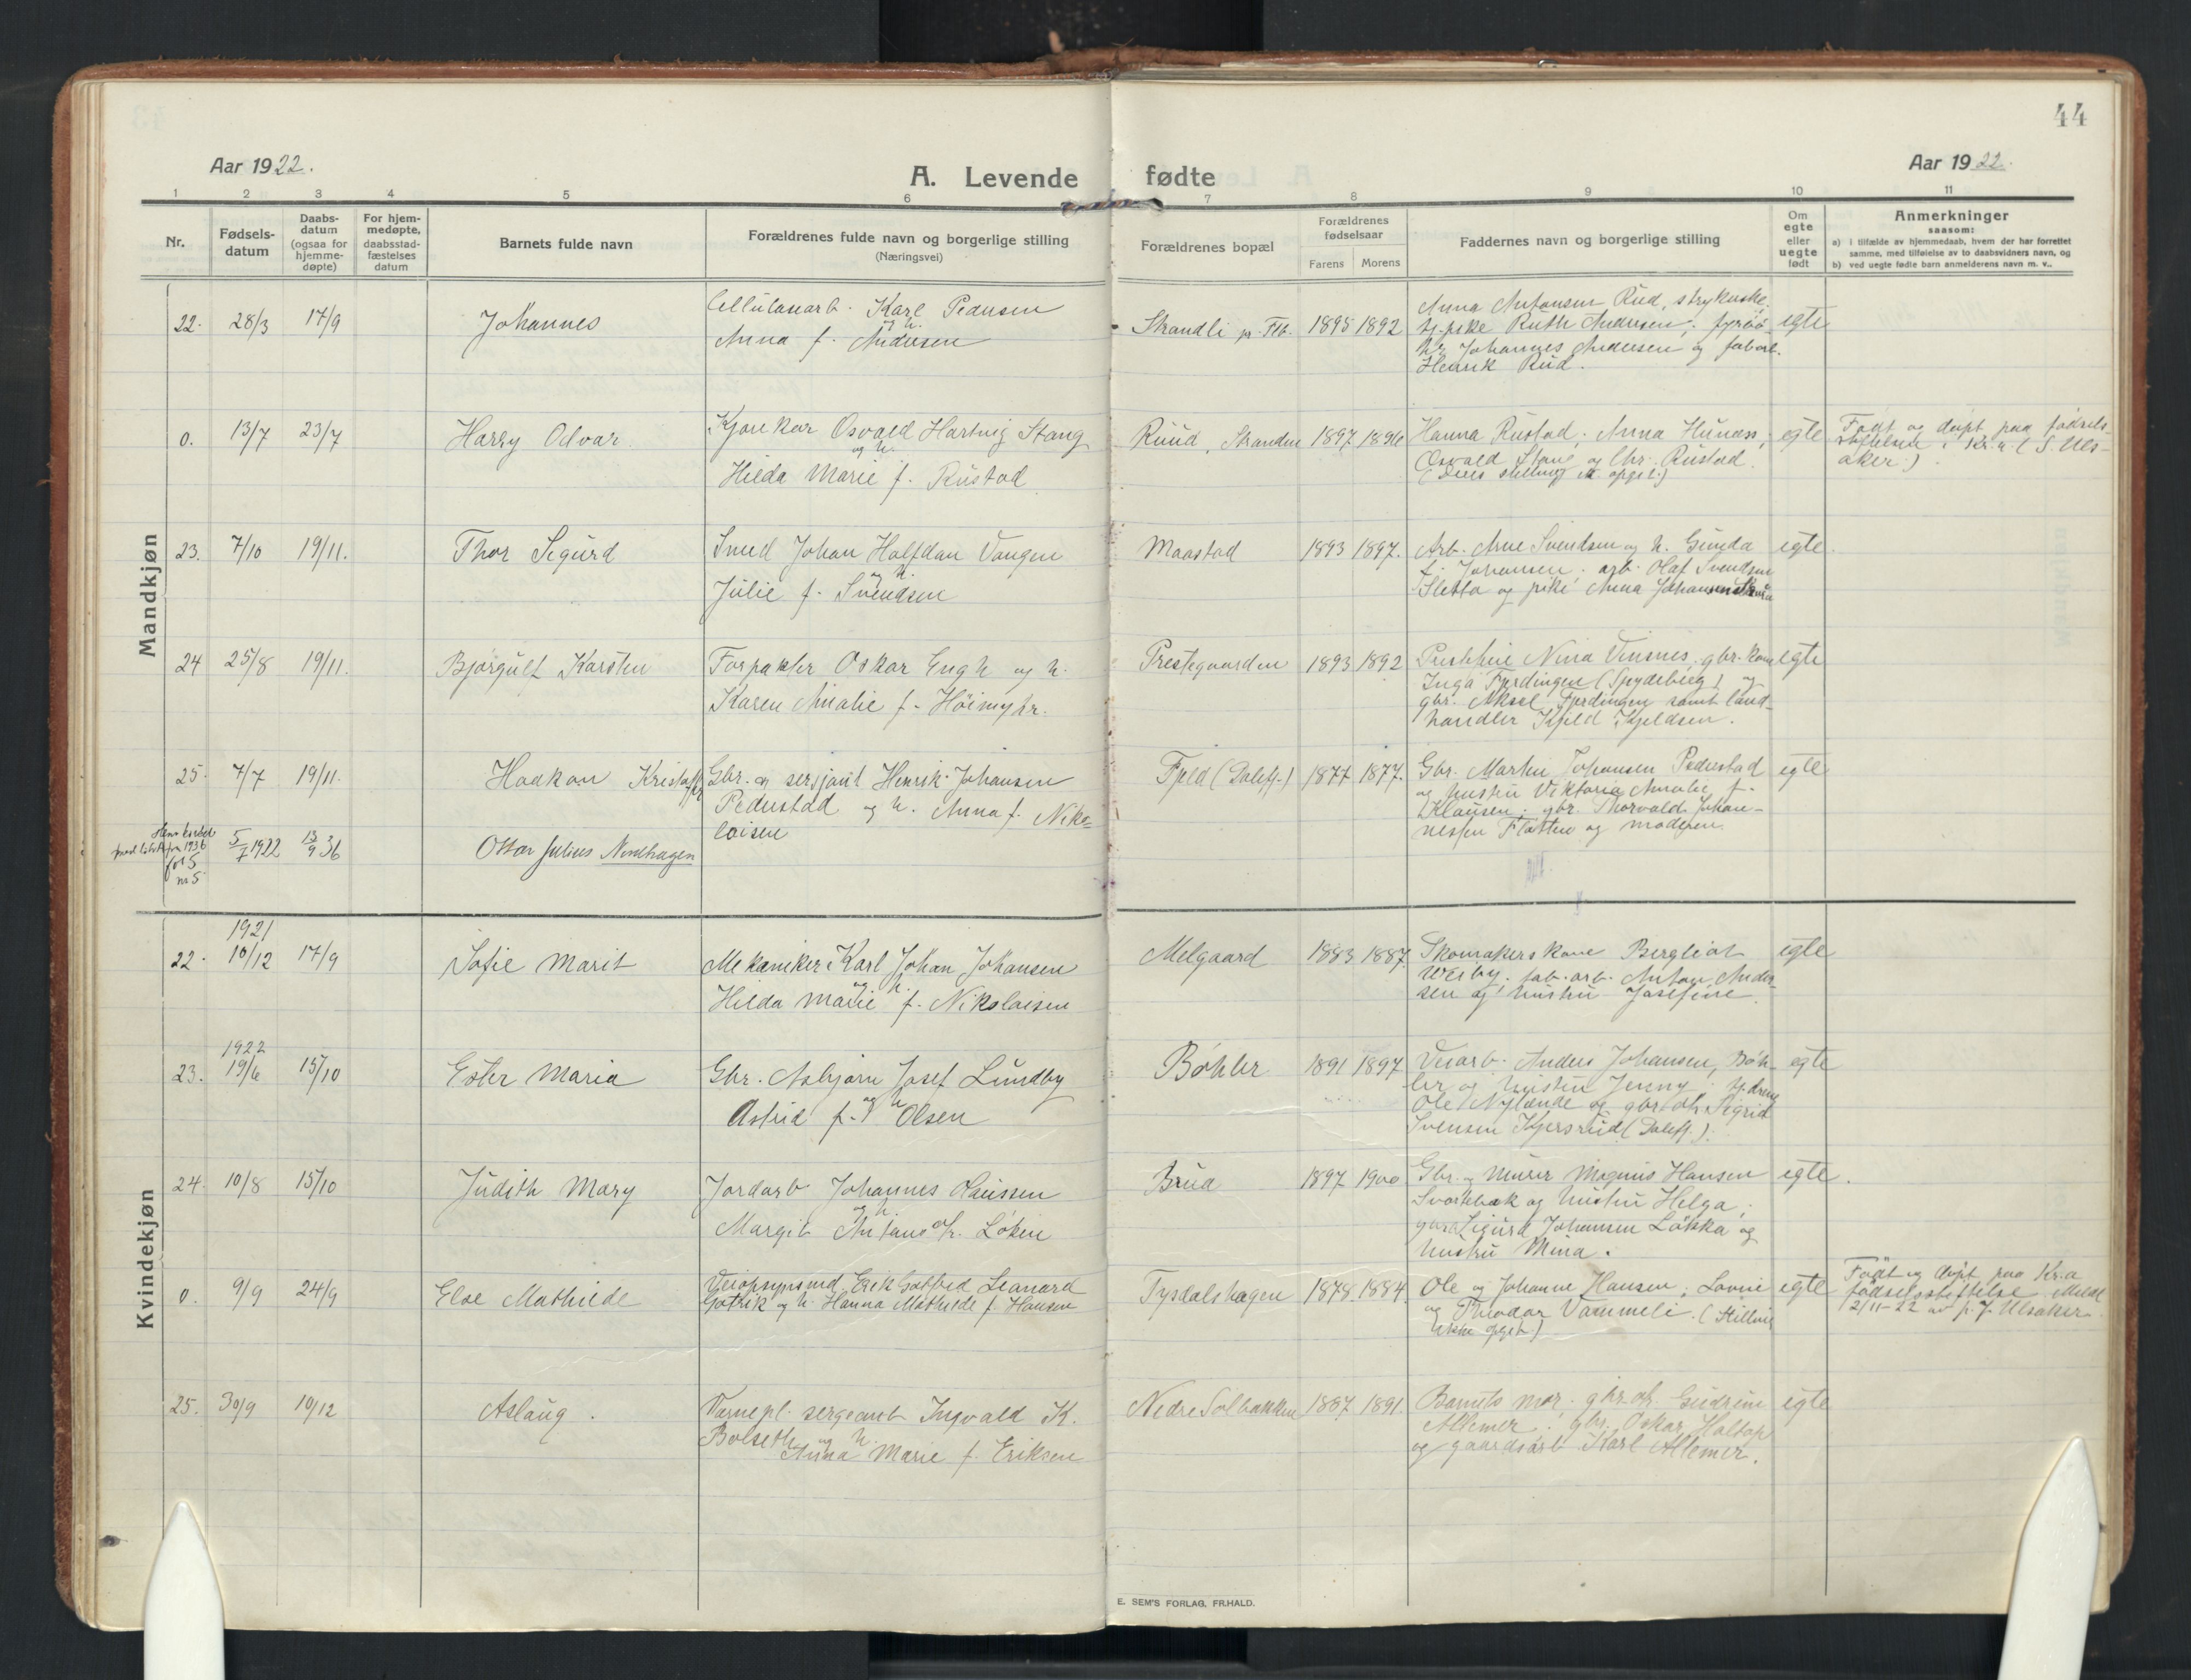 44
Aar 1922.
A. Levende fødte
Aar 1922.
1 2 3 4 5 6 7 8 9 10 11
Nr.
Fødsels-
datum
Daabs-
datum
(ogsaa for
hjemme-
døpte)
For hjem-
medøpte,
daabsstad-
fæstelses
datum
Barnets fulde navn
Forældrenes fulde navn og borgerlige stilling
(Næringsvei)
Forældrenes bopæl
Forældrenes
fødselsaar
Farens Morens
Faddernes navn og borgerlige stilling
Om
egte
eller
uegte
født
Anmerkninger
saasom:
a) i tilfælde av hjemmedaab, hvem der har forrettet
samme, med tilføielse av to daabsvidners navn, og
b) ved uegte fødte barn anmelderens navn m. v..
Mandkjøn
22. 28/3 17/9 Johannes
Cellulosearb. Karl Pedersen
og h.
Anna f. Andersen
Strandli pr. Flb. 1895 1892
Anna Antonsen Rud, strykerske,
tj.pike Ruth Andersen, fyrbø-
ter Johannes Andersen og fabarb.
Henrik Rud.
egte
0. 13/7 23/7 Harry Odvar
Kjørekar Osvald Hartvig Stang
og h.
Hilda Marie f. Rustad
Ruud, Stranden 1897 1896
Hanna Rustad, Anna Hunæss,
Osvald Stang og Chr. Rustad.
(Deres stilling ei opgit)
egte
Født og døpt paa fødsels-
stiftelsen i Kr.a (S. Uls-
aker.)
23. 7/10 19/11. Thor Sigurd
Smed Johan Halfdan Vangen
og h.
Julie f. Svendsen
Maastad 1893 1897.
Arb. Arne Svendsen og h. Gunda
f. Johansen. arb. Olaf Svendsen
Sletta og pike Anna Johansen
egte.
24 25/8 19/11. Bjørgulf Karsten
Forpakter Oskar Engh og h.
Karen Amalie f. Høimyhr.
Prestegaarden 1893 1892
Prestefrue Nina Vinsnes, gbr. kone
Inga Fjerdingen (Spydeberg) og
gbr. Aksel Fjerdingen samt land-
handler Kjeld Kjeldsen.
egte
25. 7/7 19/11. Haakon Kristoffer
Gbr. og sersjant Henrik Johansen
Pederstad og h. Anna f. Niko-
laisen
Fjeld (Dalefj.) 1877 1877.
Gbr. Martin Johansen Pederstad
og hustru Viktoria Amalie f.
Klausen; gbr. Thorvald Johan-
nessen Flatten og moderen.
egte
1936
fol 5
nr 5
5/7 1922 13/9 36 Ottar Julius Nordhagen
Kvindekjøn
1921
22. 10/12 17/9 Sofie Marit
Mekaniker Karl Johan Johansen
og h.
Hilda Marie f. Nikolaisen
Melgaard 1883 1887.
Skomakerskone Bergliot
Wesby; fab.arb. Anton Ander-
sen og hustru Josefine
egte
1922
23. 19/6 15/10 Ester Maria
Gbr. Asbjørn Josef Lundby
og h
Astrid f. Olsen
Bøhler 1891 1897
Veiarb. Anders Johansen, Bøh-
ler og hustru Jenny; tj.dreng
Ole Nylænde og gbr.dtr. Sigrid
Svensen Kjersrud (Dalefj.).
egte
24. 10/8 15/10 Judith Mary
Jordarb Johannes Claussen
og h
Margit Antonsdtr. Løken
Brua 1897 1900
Gbr. og murer Magnus Hansen
Svartebæk og hustru Helga;
gbr. Sigurd Johansen Løkka og
hustru Mina.
egte.
0. 9/9 24/9 Else Mathilde
Veiopsynsmd. Erik Gotfred Leonard
Gotrik og h. Hanna Mathilde f. Hansen
Tysdalshagen 1878. 1884.
Ole og Johanne Hansen; Lovise
og Theodor Vammeli. (Stilling
ikke opgit)
egte
Født og døpt paa Kr.a
fødselsstiftelse. Meldt
2/11-22 av p. J. Ulsaker
25. 30/9 10/12 Aslaug.
Vernepl. sergeant Ingvald K.
Bolseth og h.
Anna Marie f. Eriksen
Nedre Solbakken 1887 1891.
Barnets mor; gbr.dtr. Gudrun
Allemer; gbr. Oskar Holtop
og gaardsarb Karl Allemer.
egte
E. SEM'S FORLAG, FR.HALD.